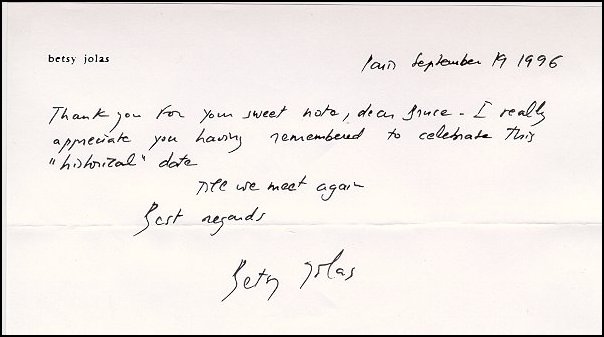 betsy jolas
Paris September 19 1996
Thank you for your sweet note, dear Bruce - I really
appreciate you having remembered to celebrate this
"historical" date
Till we meet again
Best regards
Betsy Jolas